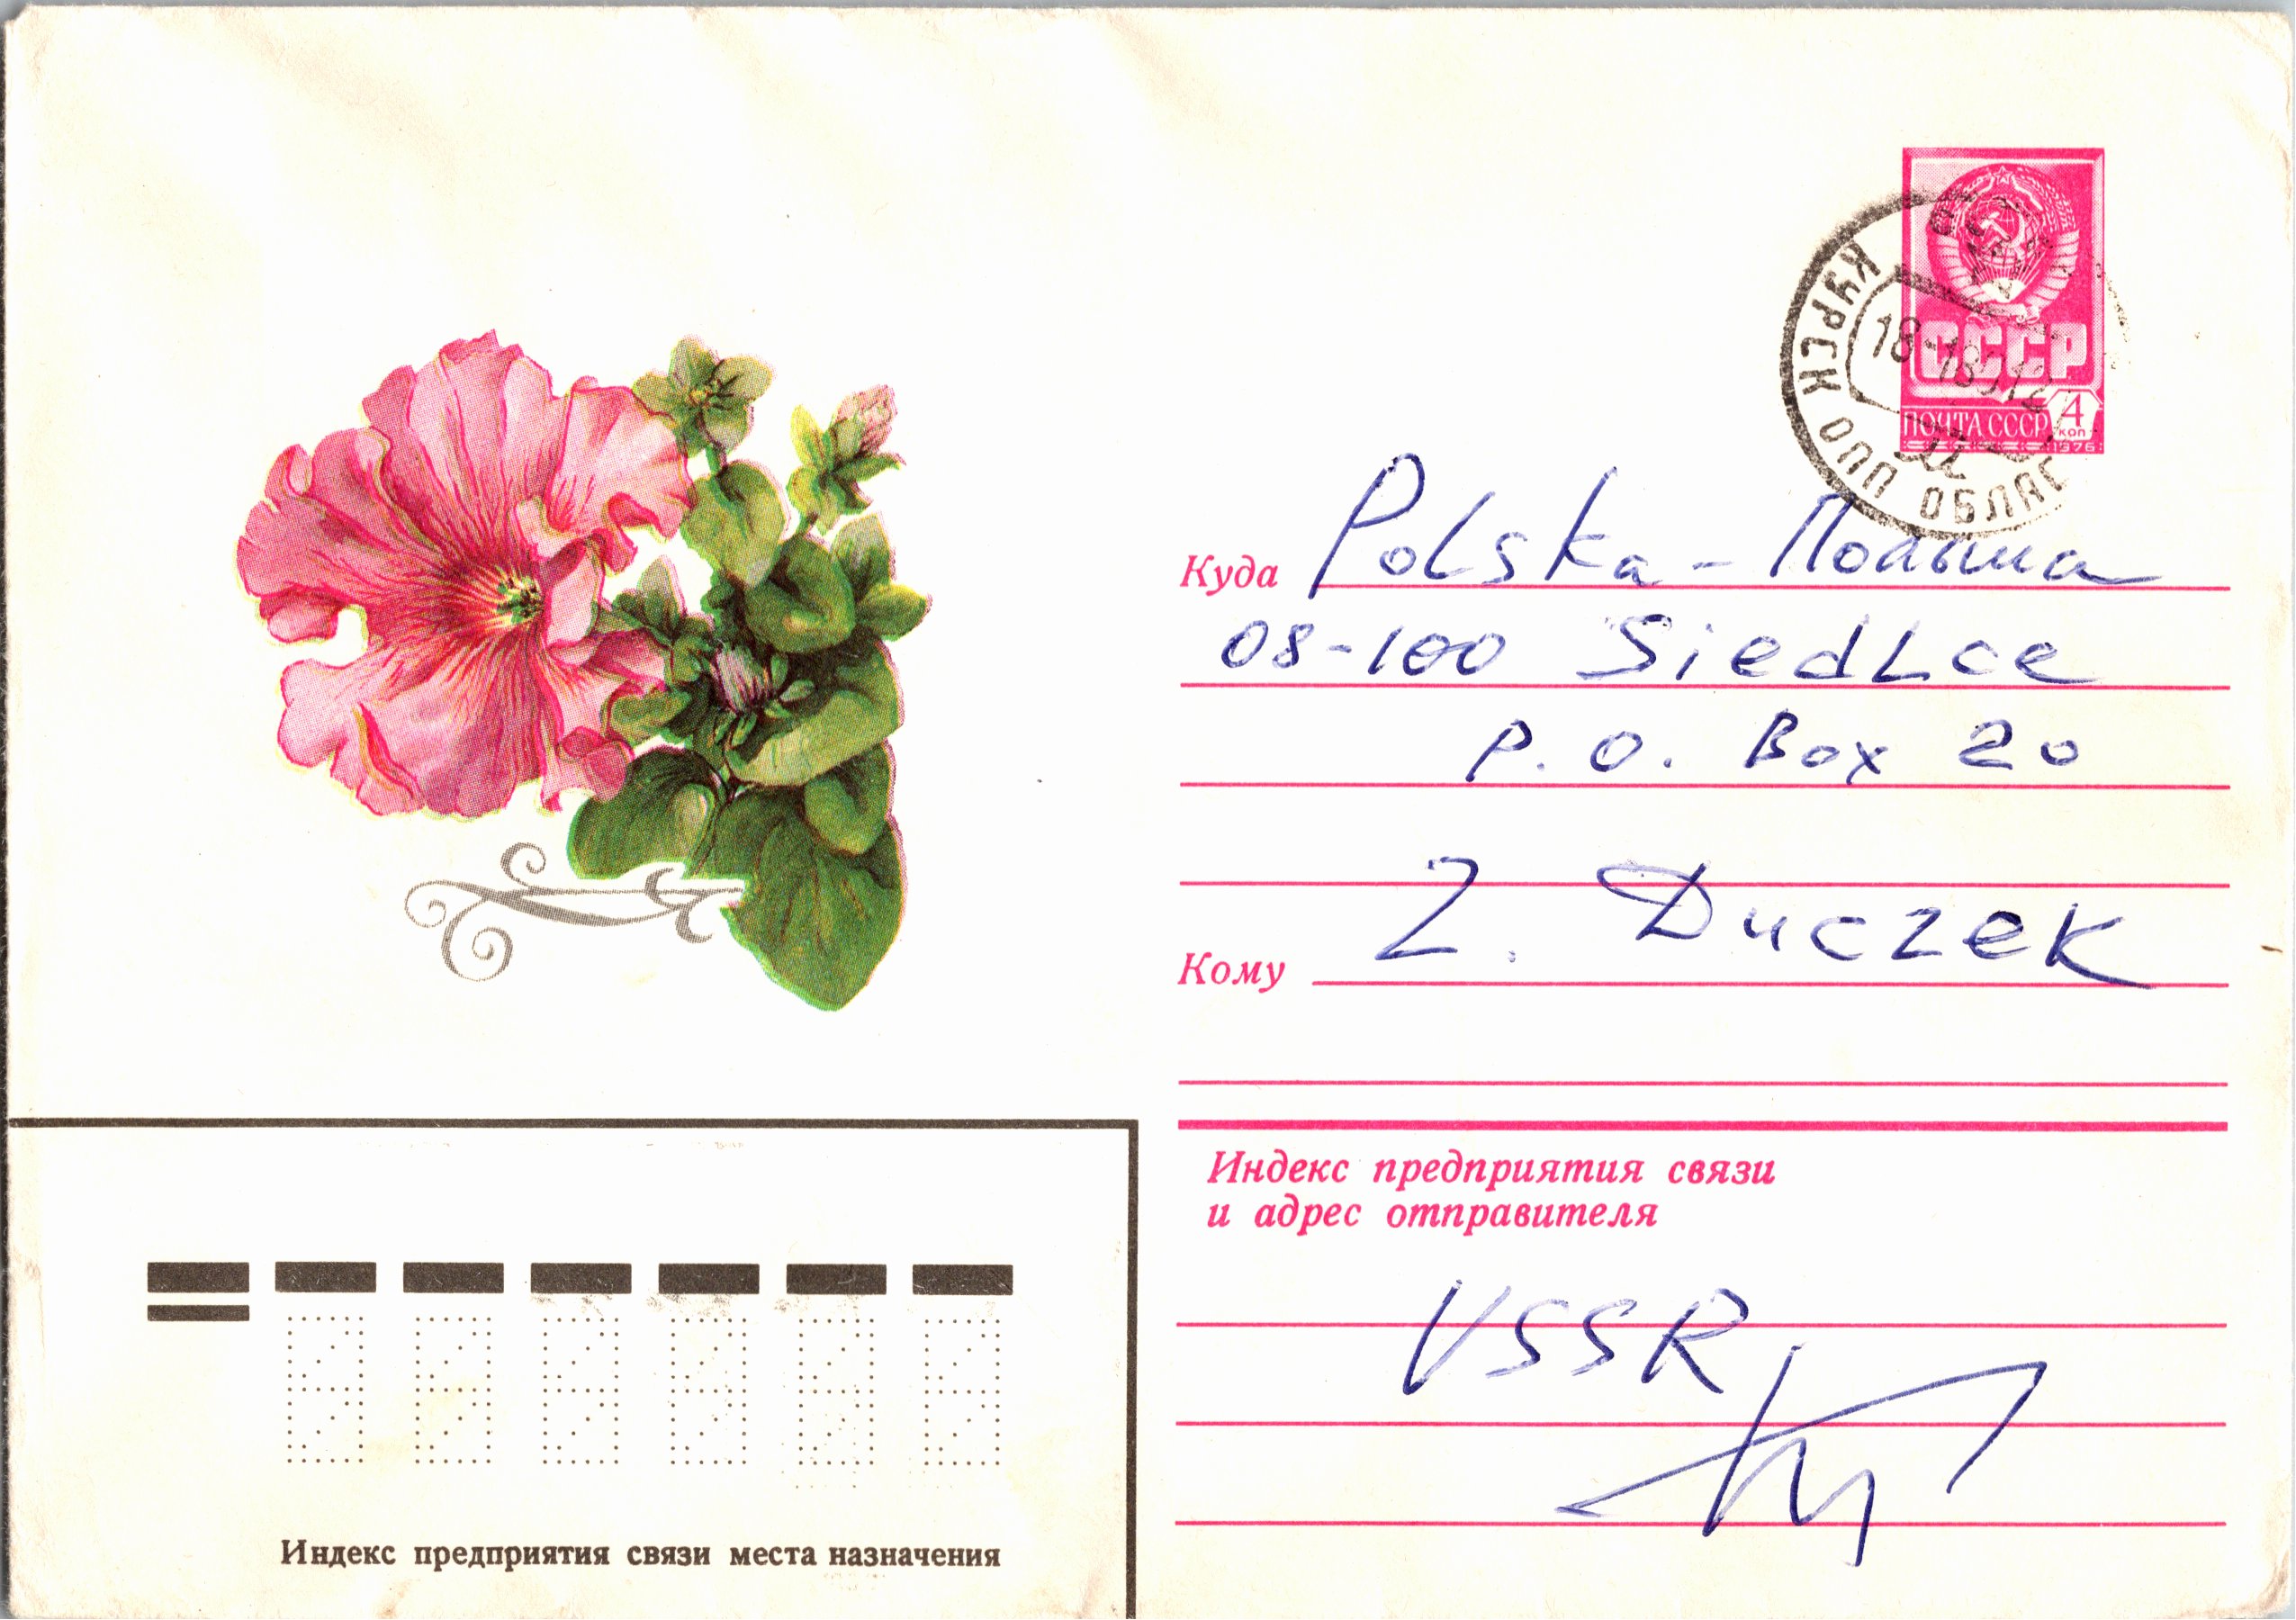 СССР
ПОЧТА СССР 4 коп
1976
КУРСК ОПП ОБЛАС
Куда Polska - Польша
08-100 Siedlce
P. O. Box 20
Кому Z. Duczek
Индекс предприятия связи
и адрес отправителя
USSR
Индекс предприятия связи места назначения